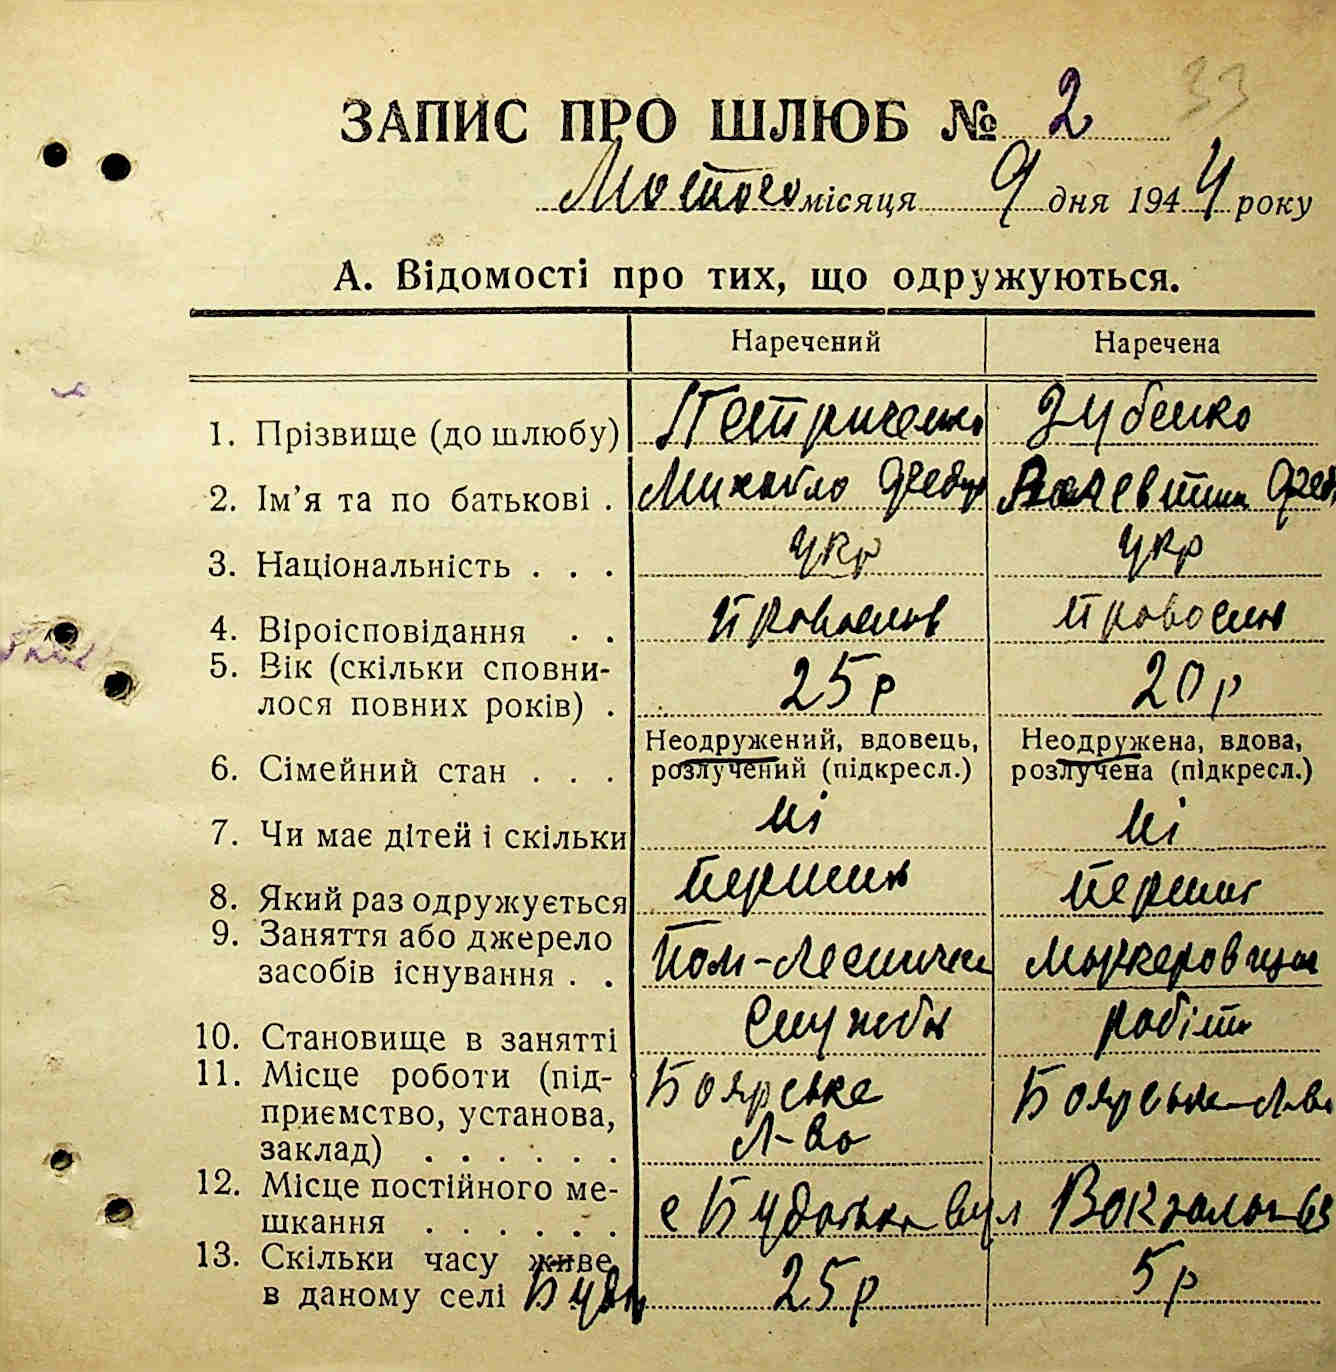 33
ЗАПИС ПРО ШЛЮБ № 2
Лютого місяця 9 дня 1944 року
А. Відомості про тих, що одружуються.
Наречений Наречена
1. Прізвище (до шлюбу) Петриченко Зубенко
2. Ім'я та по батькові . Михайло Федор Валентина Фед
3. Національність . . . укр укр
4. Віроісповідання . . православ православ
5. Вік (скільки сповни-
лося повних років) . 25 р 20 р
6. Сімейний стан . . . Неодружений, вдовець, розлучений (підкресл.) Неодружена, вдова, розлучена (підкресл.)
7. Чи має дітей і скільки ні ні
8. Який раз одружується перший перший
9. Заняття або джерело
засобів існування . . Пом-Лесничего
10. Становище в занятті службо робітн
11. Місце роботи (під-
приємство, установа,
заклад) . . . . . . Боярське Л-во Боярське Л-во
12. Місце постійного ме-
шкання . . . . . . с Будаївка вул Вокзальн 63
13. Скільки часу живе
в даному селі Буда 25 р 5 р